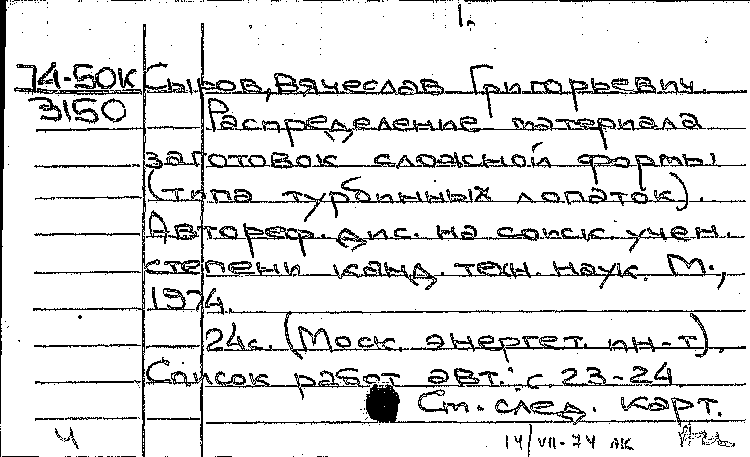 1.
74-50К Сыров, Вячеслав Григорьевич.
3150 Распределение материала
заготовок сложной формы
(типа турбинных лопаток).
Автореф. дис. на соиск. учен.
степени канд. техн. наук. М.,
1974.
24с. (Моск. энергет. ин-т).
Список работ авт.: с. 23-24
См. след. карт.
Ч 14/VII-74 лк